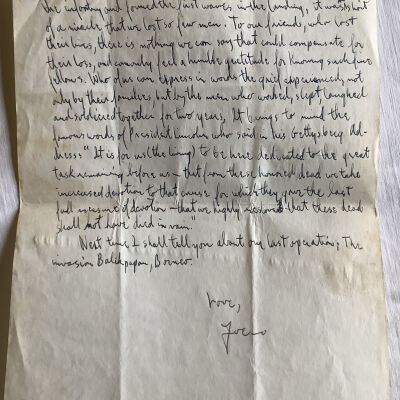 the infantry and formed the first waves in the landing, it was short
of a miracle that we lost so few men. To our friends, who lost
their lives, there is nothing we can say that could compensate for
their loss, and can only feel a humble gratitude for knowing such fine
fellows. Who of us can express in words the grief experienced, not
only by their families, but by the men who worked, slept, laughed
and soldiered together for two years, It brings to mind the
famous words of President Lincoln who said in his Gettysburg Ad-
dress "It is for us (the living) to be here dedicated to the great
task remaining before us — that from these honored dead we take
increased devotion to that cause for which they gave the last
full measure of devotion — that we highly that these dead
shall not have died in vain."
Next time, I shall tell you about our last operation; The
invasion Balikpapan, Borneo.
Love,